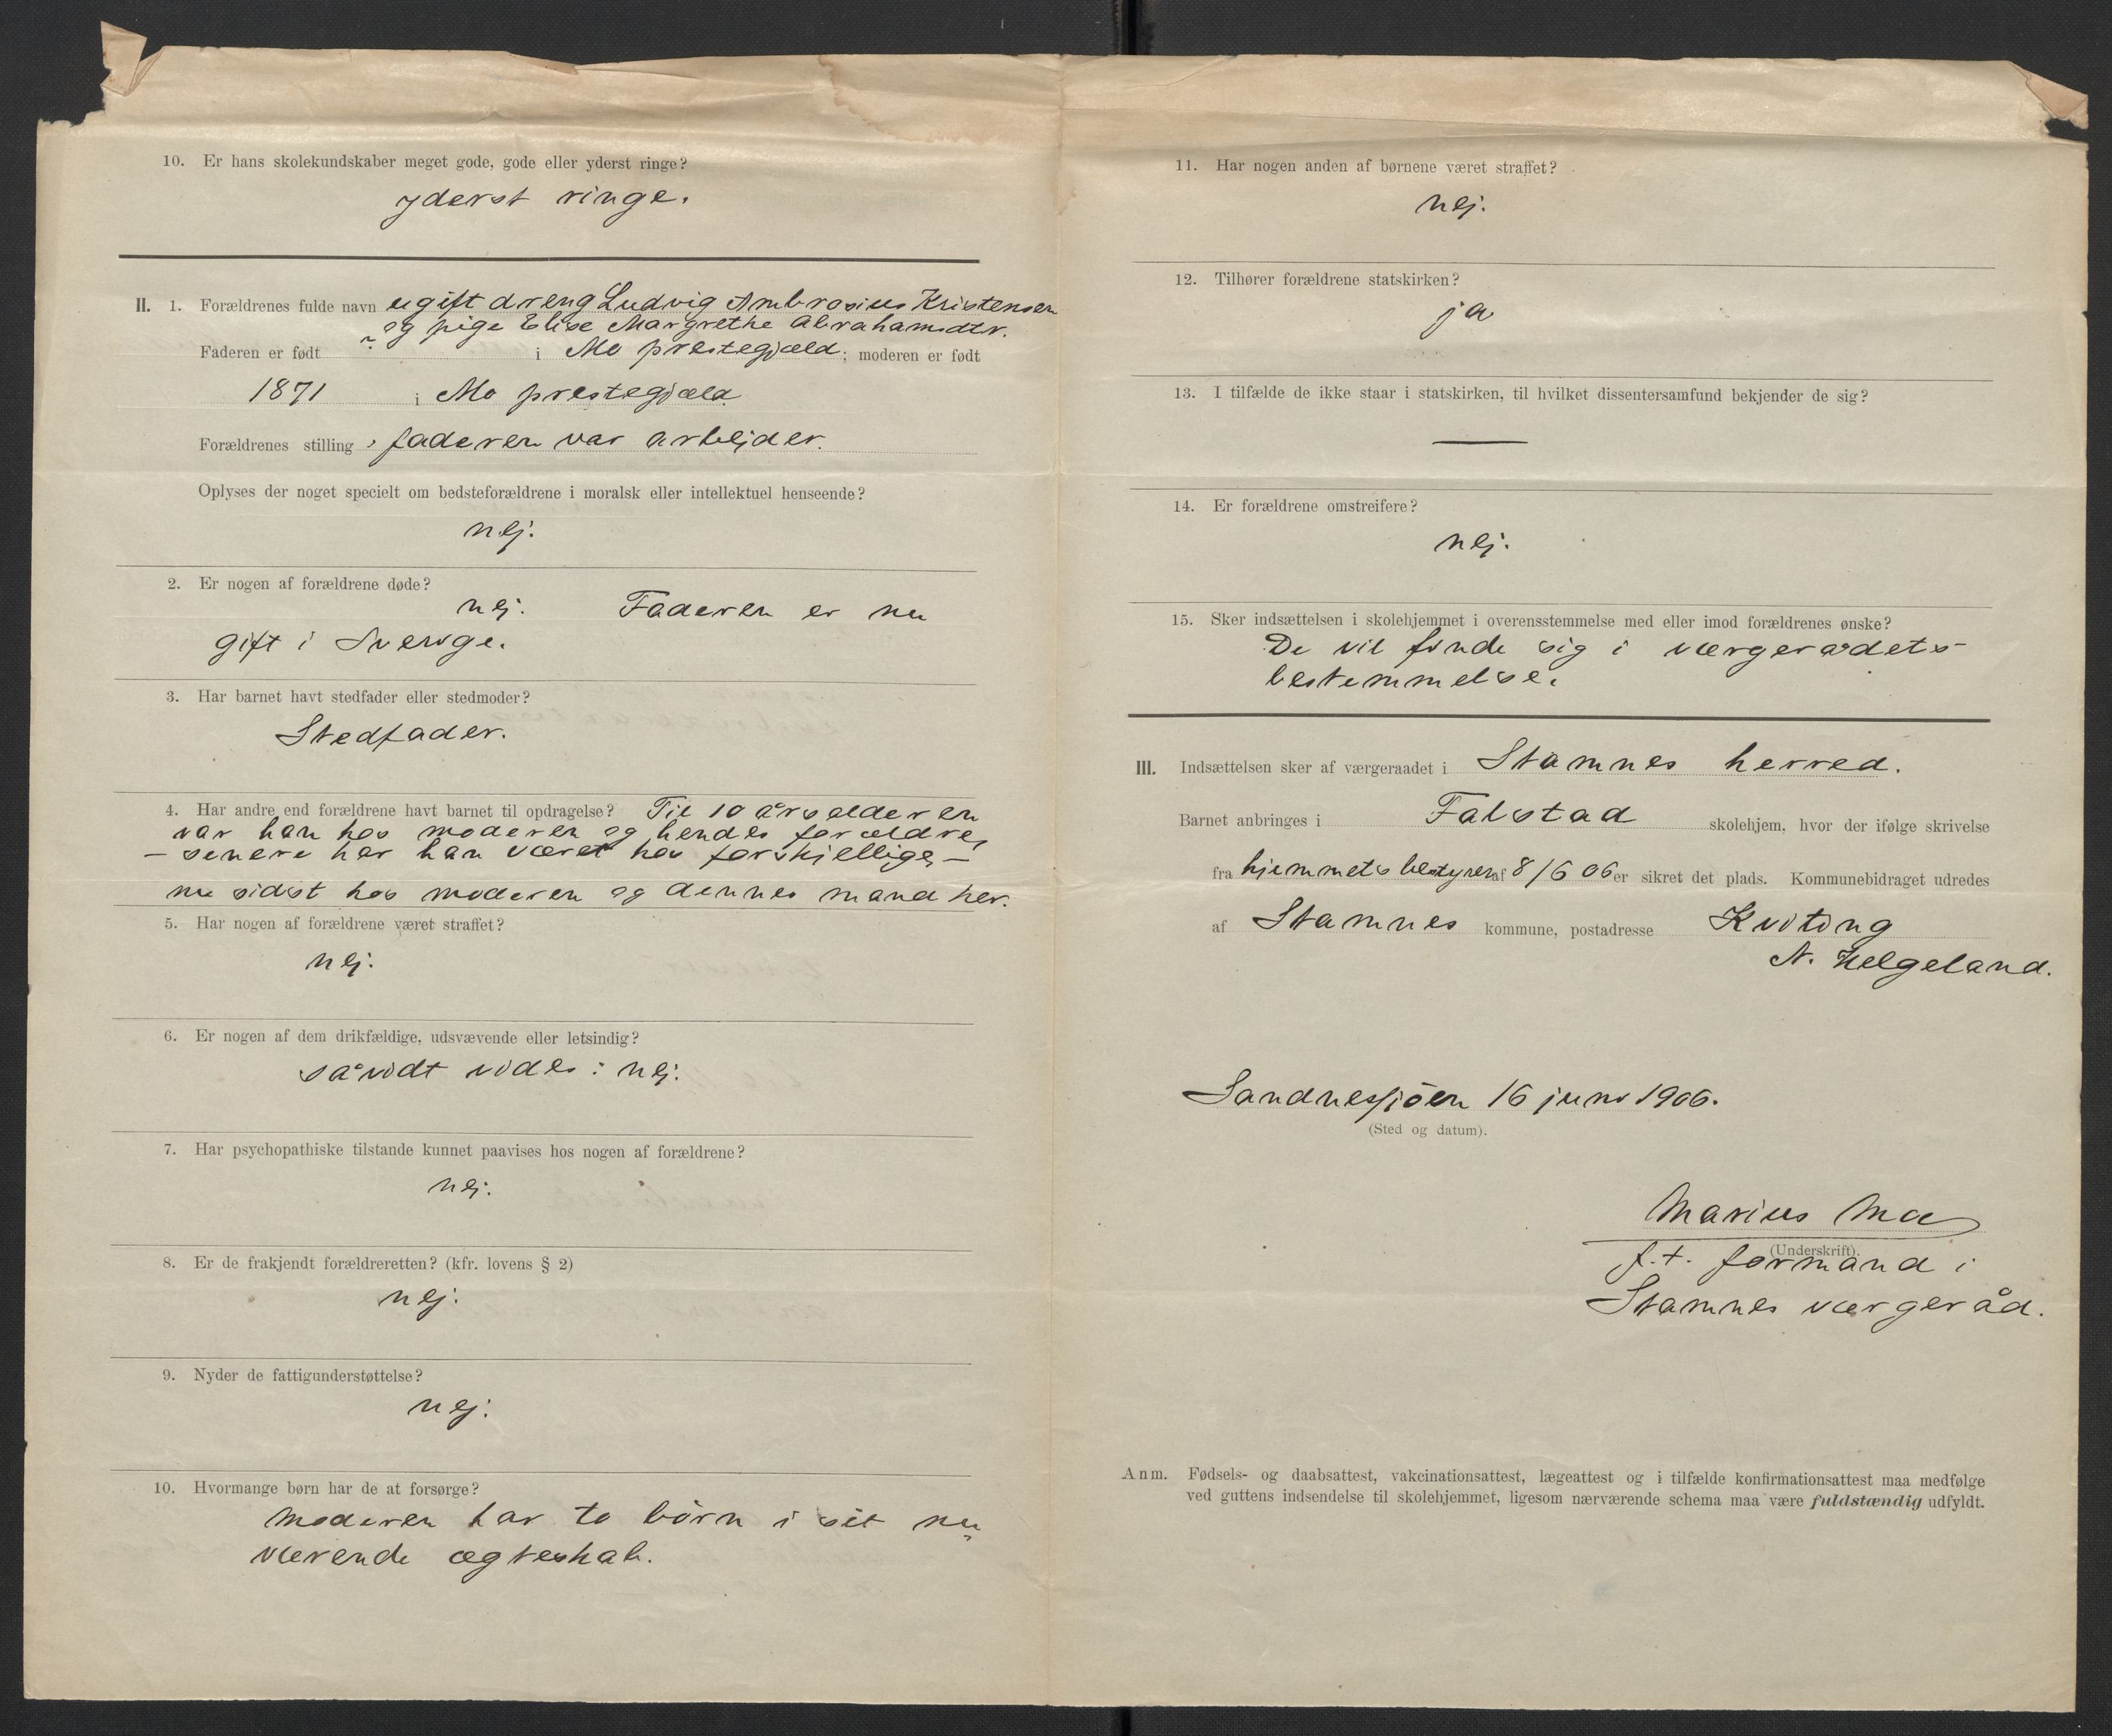 10. Er hans skolekundskaber meget gode, gode eller yderst ringe?
yderst ringe.
II. 1. Forældrenes fulde navn ugift dreng Ludvig Ambrosius Kristensen
og pige Elise Margrethe Abrahamsdtr.
Faderen er født ~ i Mo prestegjæld; moderen er født
1871 i Mo prestegjæld
Forældrenes stilling, faderen var arbejder.
Oplyses der noget specielt om bedsteforældrene i moralsk eller intellektuel henseende?
nej.
2. Er nogen af forældrene døde?
nej. Faderen er nu
gift i Sverige.
3. Har barnet havt stedfader eller stedmoder?
Stedfader.
4. Har andre end forældrene havt barnet til opdragelse? Til 10 årsalderen
var han hos moderen og hendes forældre,
– senere har han været hos forskjellige, –
nu sidst hos moderen og dennes mand her.
5. Har nogen af forældrene været straffet?
nej.
6. Er nogen af dem drikfældige, udsvævende eller letsindig?
såvidt vides: nej.
7. Har psychopathiske tilstande kunnet paavises hos nogen af forældrene?
nej.
8. Er de frakjendt forældreretten? (kfr. lovens § 2)
nej.
9. Nyder de fattigunderstøttelse?
nej.
10. Hvormange børn har de at forsørge?
Moderen har to børn i sit nu
værende ægteskab.
11. Har nogen anden af børnene været straffet?
nej.
12. Tilhører forældrene statskirken?
ja
13. I tilfælde de ikke staar i statskirken, til hvilket dissentersamfund bekjender de sig?
—
14. Er forældrene omstreifere?
nej.
15. Sker indsættelsen i skolehjemmet i overensstemmelse med eller imod forældrenes ønske?
De vil finde sig i værgerådets
bestemmelse.
III. Indsættelsen sker af værgeraadet i Stamnes herred.
Barnet anbringes i Falstad skolehjem, hvor der ifølge skrivelse
fra hjemmets bestyrer af 8/6 06 er sikret det plads. Kommunebidraget udredes
af Stamnes kommune, postadresse Kvitting
N. Helgeland.
Sandnessjøen 16 juni 1906.
(Sted og datum).
Marius Mo
(Underskrift).
f.t. formand i
Stamnes værgeråd.
Anm. Fødsels- og daabsattest, vakcinationsattest, lægeattest og i tilfælde konfirmationsattest maa medfølge
ved guttens indsendelse til skolehjemmet, ligesom nærværende schema maa være fuldstændig udfyldt.